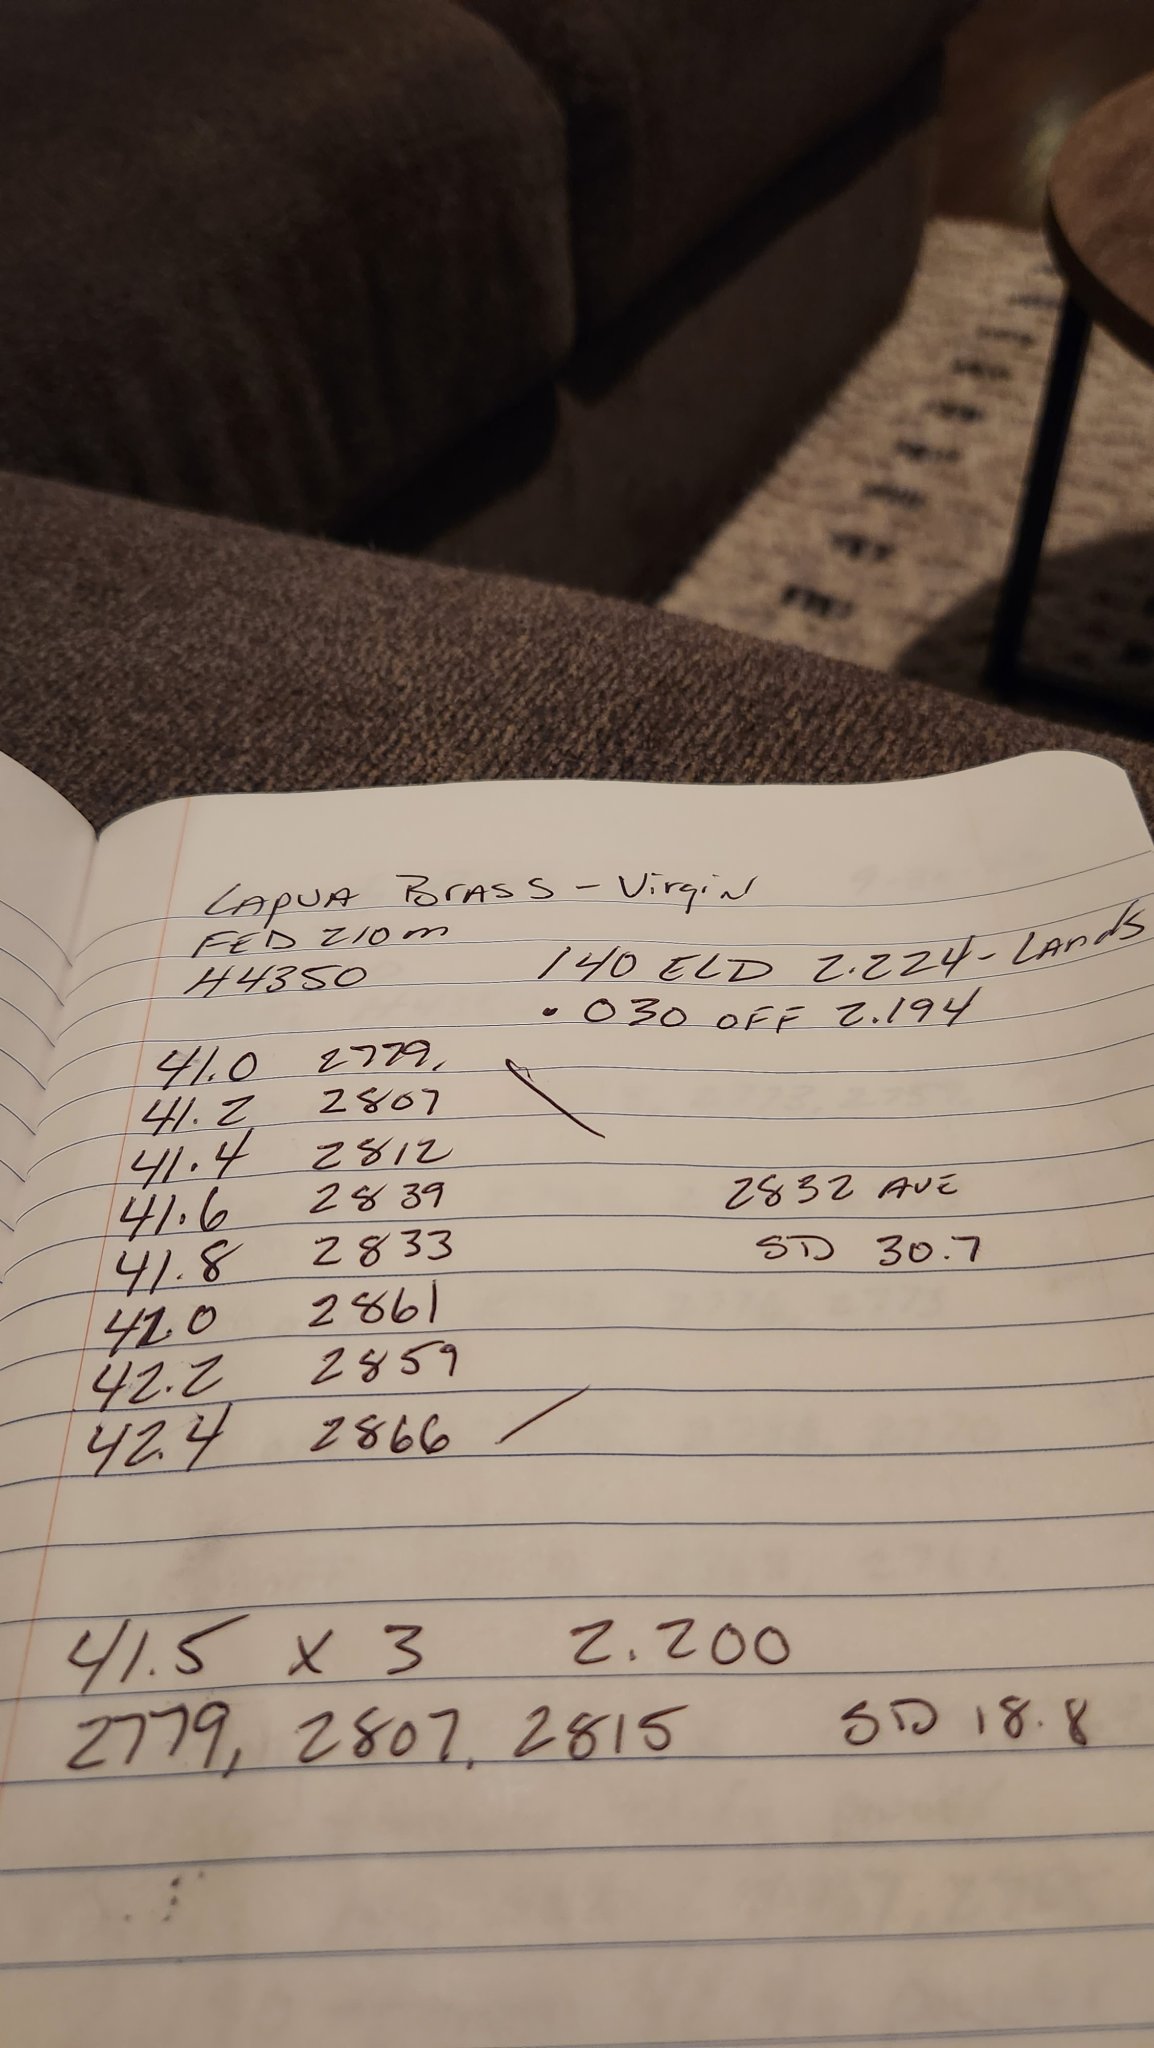 LAPUA BRASS - Virgin
FED 210m
H4350
140 ELD 2.224 - LANDS
.030 OFF 2.194
41.0 2779,
41.2 2807
41.4 2812
41.6 2839
41.8 2833
42.0 2861
42.2 2859
42.4 2866
2832 AVE
SD 30.7
41.5 x 3 2.200
2779, 2807, 2815 SD 18.8